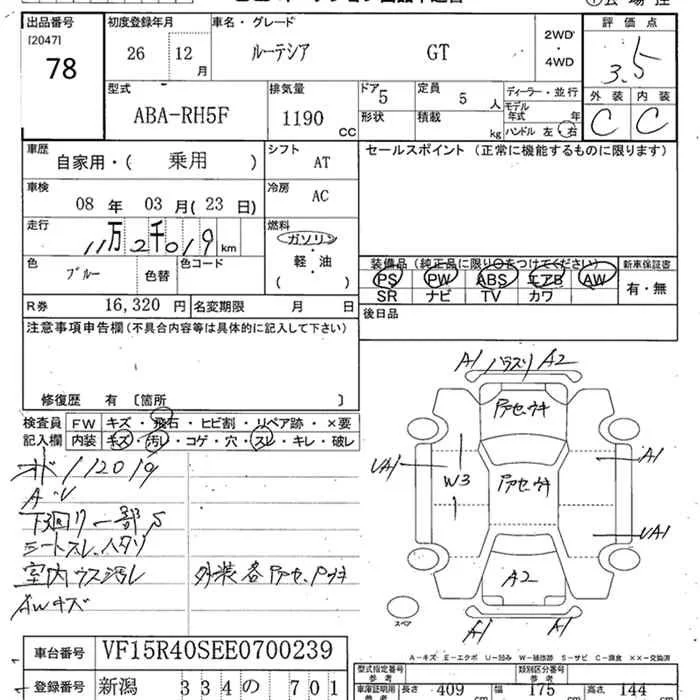 出品番号
[2047]
78
初度登録年月
26 12 月
車名・グレード
ルーテシア GT
2WD
4WD
評価点
3.5
型式
ABA-RH5F
排気量
1190 CC
ドア
5
形状
定員
5 人
積載
kg
ディーラー・並行
モデル年式 年
ハンドル 左 右
外装 内装
C C
車歴
自家用・( 乗用 )
シフト
AT
セールスポイント (正常に機能するものに限ります)
車検
08 年 03 月(23 日)
冷房
AC
走行
11万2千019 km
燃料
ガソリン
軽・油
( )
色
ブルー
色替
色コード
装備品 (純正品に限り○をつけてください)
PS PW ABS エアB AW
SR ナビ TV カワ
新車保証書
有・無
R券 16,320 円
名変期限 月 日
後日品
注意事項申告欄(不具合内容等は具体的に記入して下さい)
修復歴 有 〔箇所 〕
検査員
記入欄
FW キズ・飛石・ヒビ割・リペア跡・×要
内装 キズ・汚レ・コゲ・穴・スレ・キレ・破レ
112019
下廻り一部S
シートスレ、ヘタリ
室内ウス汚レ
AWキズ
A1 バラスリ A2
UA1
W3
A1
UA1
A2
A1 A1
スペア
A-キズ E-エクボ U-凹ミ W-補修跡 S-サビ C-腐食 ××-交換済
車台番号 VF15R40SEE0700239
登録番号 新潟 334 の 701
型式指定番号
参考
類別区分番号
参考
車庫証明用
参考
長さ 409 cm
幅 175 cm
高さ 144 cm